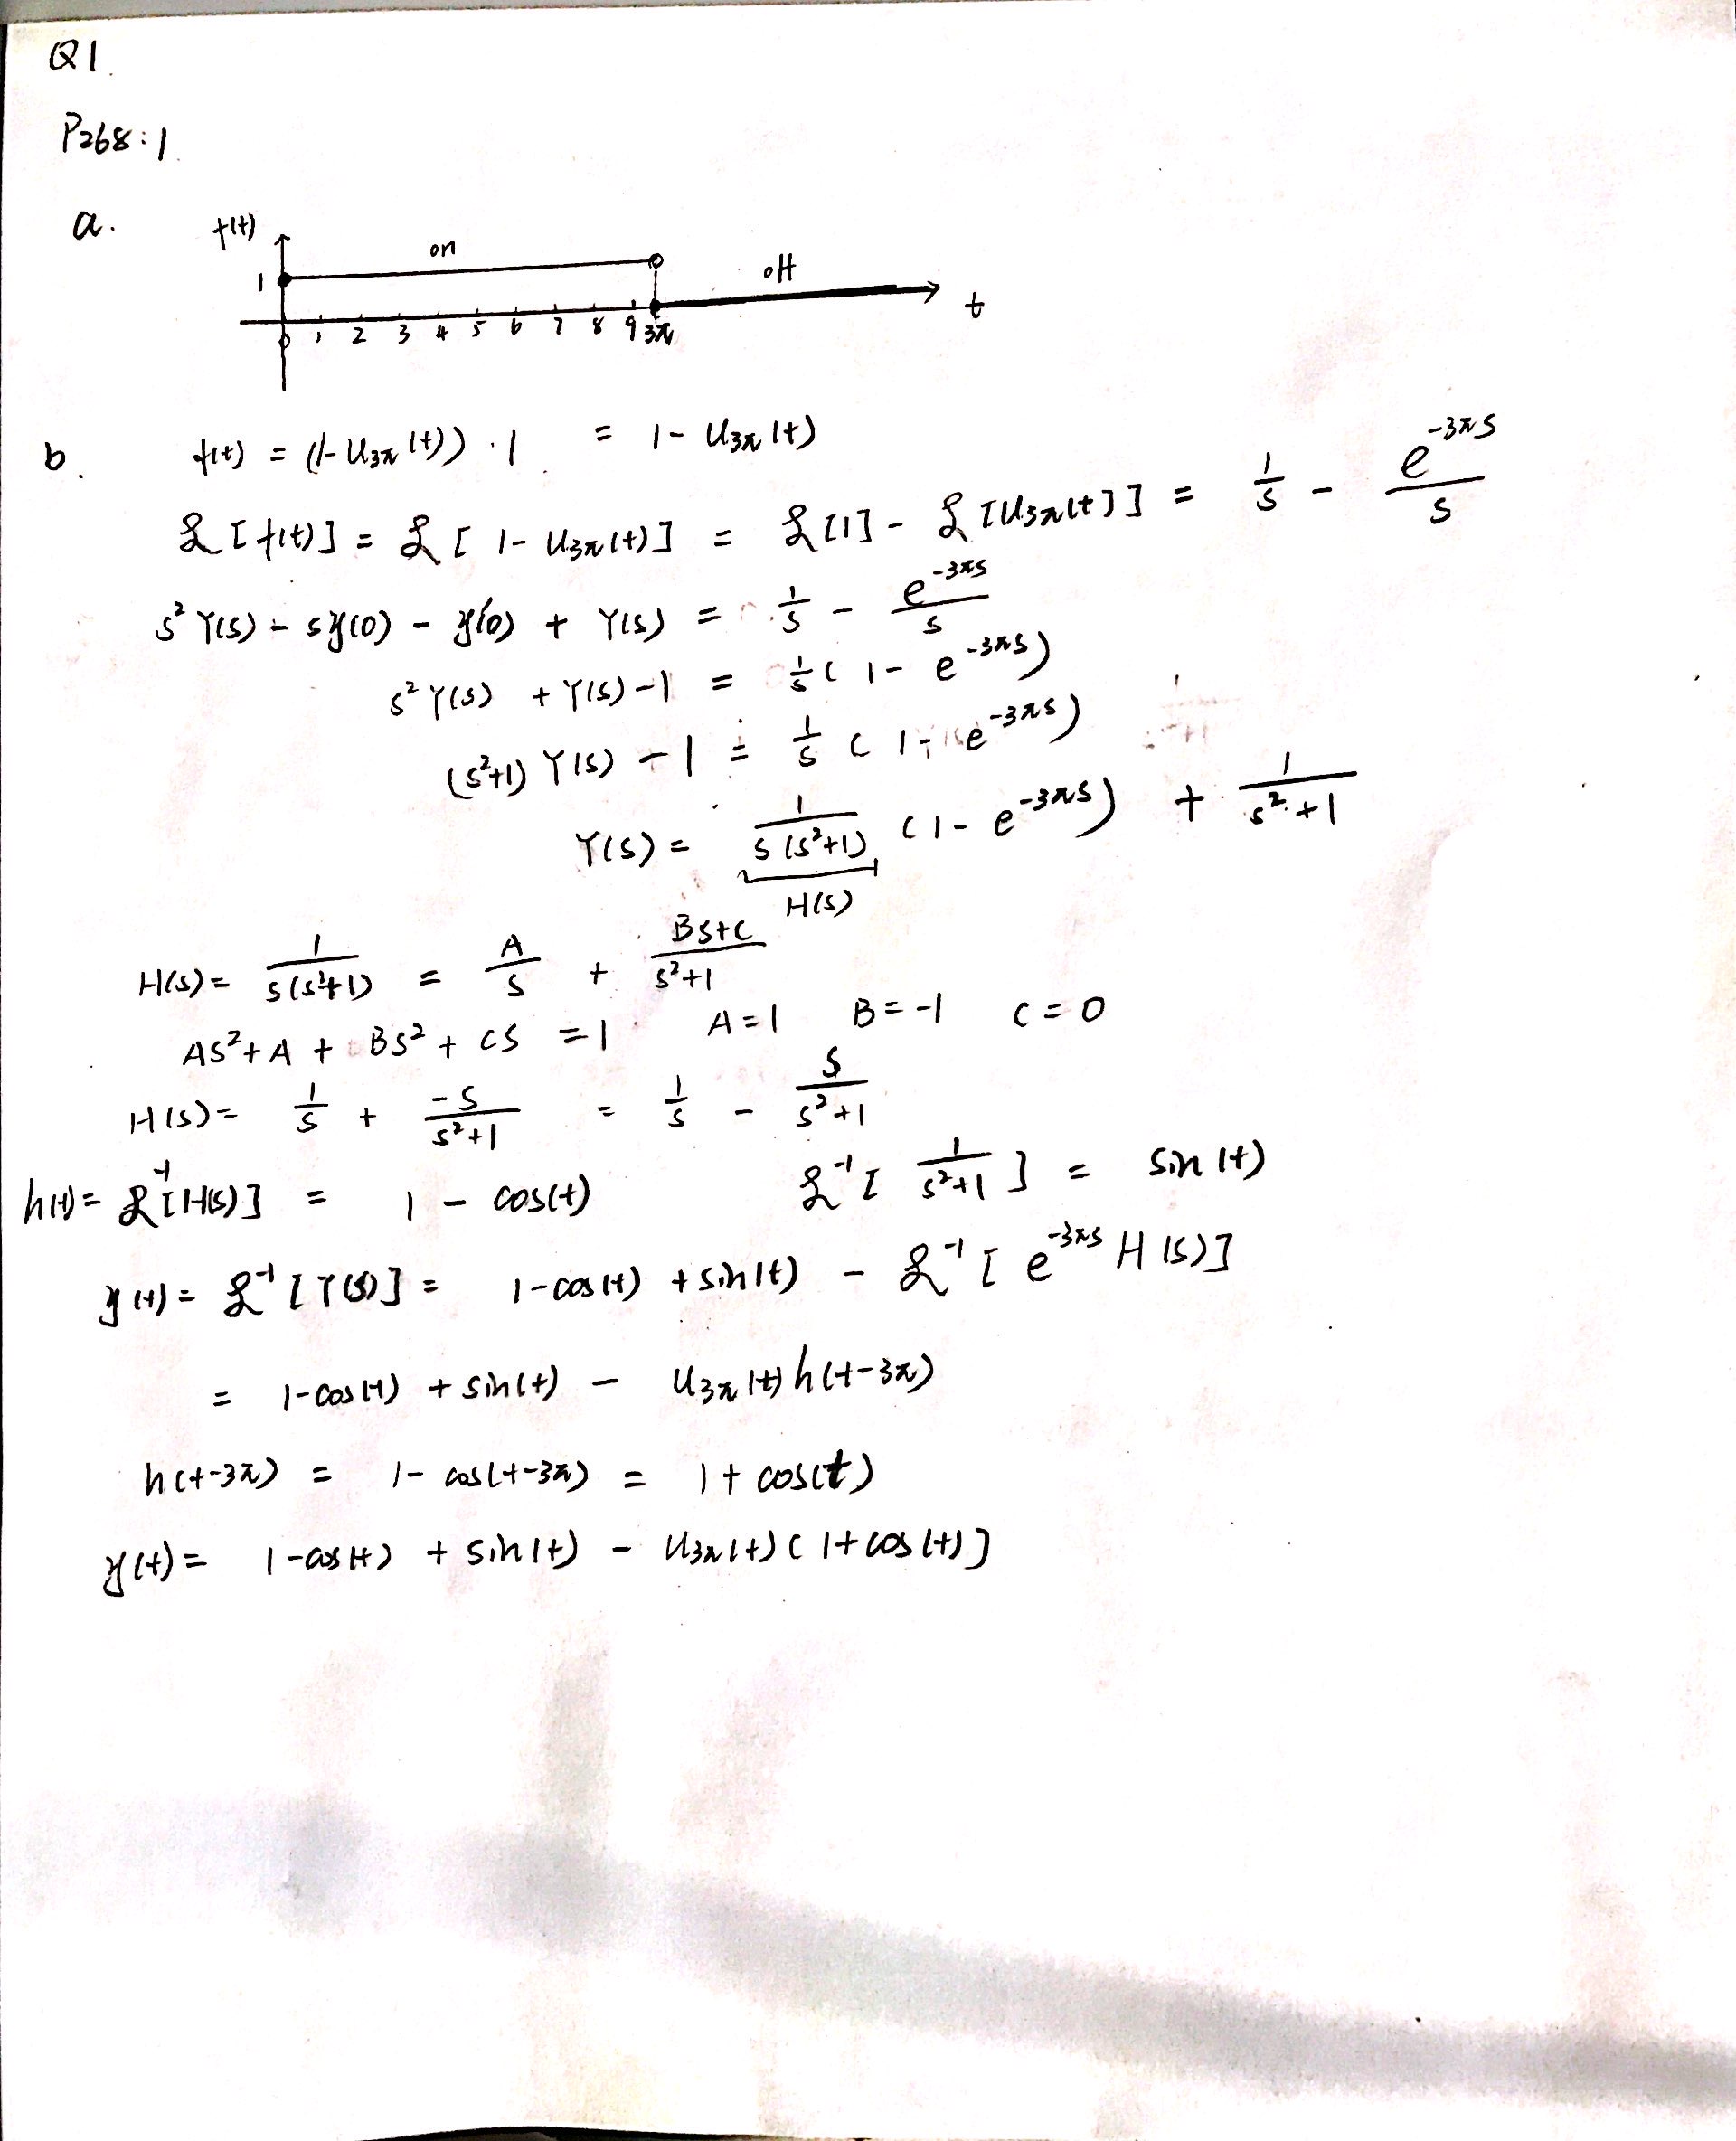 Q1.
P268:1.
a.
f(t)
on
off
1
t
0 1 2 3 4 5 6 7 8 9 3π
b. f(t) = (1-U3π(t))·1 = 1-U3π(t)
ℒ[f(t)] = ℒ[1-U3π(t)] = ℒ[1] - ℒ[U3π(t)]] = 1/s - e^(-3πs)/s
s²Y(s) - sy(0) - y'(0) + Y(s) = 1/s - e^(-3πs)/s
s²Y(s) + Y(s) - 1 = 1/s (1-e^(-3πs))
(s²+1)Y(s) - 1 = 1/s (1-e^(-3πs))
Y(s) = 1/(s(s²+1)) (1-e^(-3πs)) + 1/(s²+1)
H(s)
H(s) = 1/(s(s²+1)) = A/s + (Bs+C)/(s²+1)
As²+A + Bs² + Cs = 1 A=1 B=-1 C=0
H(s) = 1/s + -s/(s²+1) = 1/s - s/(s²+1)
h(t) = ℒ⁻¹[H(s)] = 1 - cos(t) ℒ⁻¹[1/(s²+1)] = sin(t)
y(t) = ℒ⁻¹[Y(s)] = 1-cos(t) + sin(t) - ℒ⁻¹[e^(-3πs) H(s)]
= 1-cos(t) + sin(t) - U3π(t) h(t-3π)
h(t-3π) = 1-cos(t-3π) = 1+cos(t)
y(t) = 1-cos(t) + sin(t) - U3π(t) (1+cos(t)]